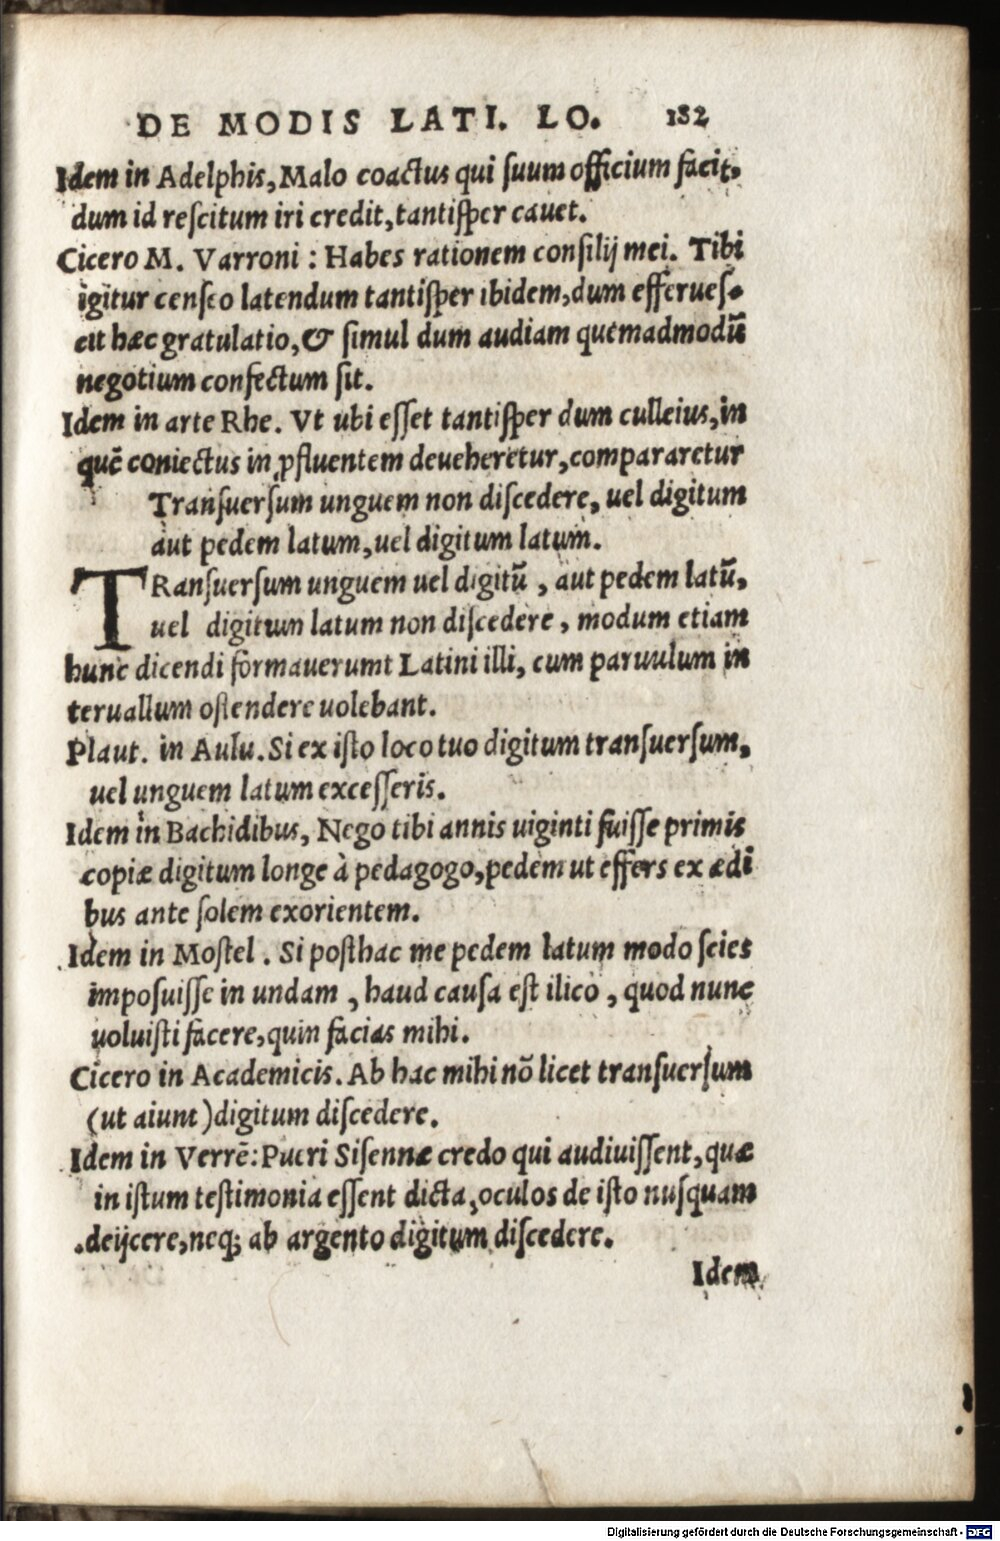 DE MODIS LATI. LO. 182
Idem in Adelphis, Malo coactus qui ſuum officium facit,
dum id reſcitum iri credit, tantiſper cauet.
Cicero M. Varroni : Habes rationem conſilij mei. Tibi
igitur cenſeo latendum tantiſper ibidem, dum efferueſ-
cit hæc gratulatio, & ſimul dum audiam quemadmodū
negotium confectum ſit.
Idem in arte Rhe. Vt ubi eſſet tantiſper dum culleius, in
quē coniectus in ꝓfluentem deueheretur, compararetur
Tranſuerſum unguem non diſcedere, uel digitum
aut pedem latum, uel digitum latum.
TRanſuerſum unguem uel digitū, aut pedem latū,
uel digitum latum non diſcedere, modum etiam
hunc dicendi formauerumt Latini illi, cum paruulum in
teruallum oſtendere uolebant.
Plaut. in Aulu. Si ex iſto loco tuo digitum tranſuerſum,
uel unguem latum exceſſeris.
Idem in Bachidibus, Nego tibi annis uiginti fuiſſe primis
copiæ digitum longe à pedagogo, pedem ut effers ex ædi
bus ante ſolem exorientem.
Idem in Moſtel. Si poſthac me pedem latum modo ſcies
impoſuiſſe in undam, haud cauſa eſt ilico, quod nunc
uoluiſti facere, quin facias mihi.
Cicero in Academicis. Ab hac mihi nō licet tranſuerſum
(ut aiunt) digitum diſcedere.
Idem in Verrē: Pueri Siſennæ credo qui audiuiſſent, quæ
in iſtum teſtimonia eſſent dicta, oculos de iſto nuſquam
deijcere, neq; ab argento digitum diſcedere.
Idem
Digitalisierung gefördert durch die Deutsche Forschungsgemeinschaft - DFG